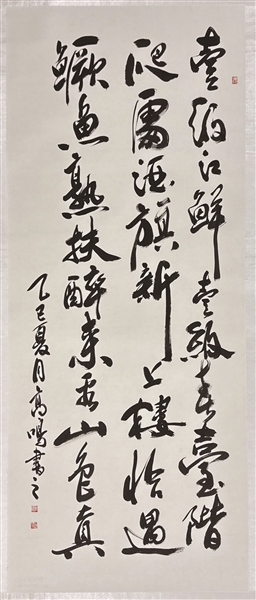 壹江鮮壹級春臺階
爬酒旗新上樓恰遇
鱖魚熟扶醉來看山色真
乙巳夏月高鳴書之